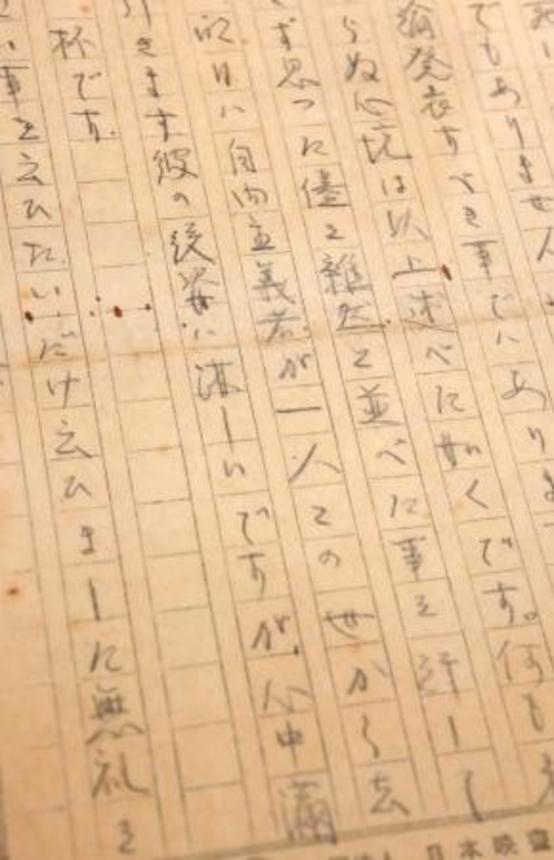 でもありません
論発表すべき事でハありま
らぬ心境は以上述べた如くです。何も
ず思つた儘を雑然と並べた事を許して
明日ハ自由主義者が一人この世から去
きます彼の後姿は淋しいですが、心中満
杯です。
い事を云ひたいだけ云ひました無礼を
日本映画